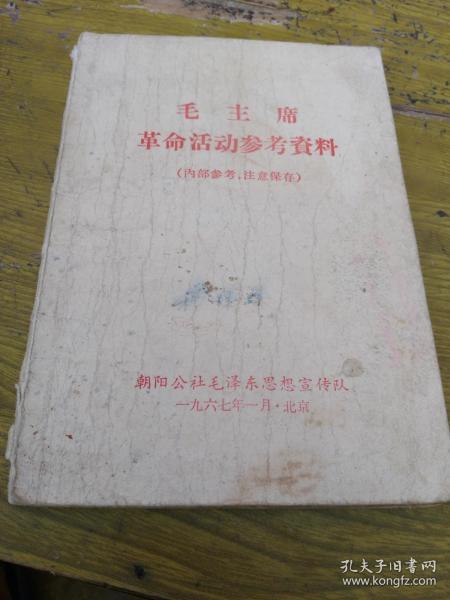 毛主席
革命活动参考資料
（内部参考，注意保存）
朝阳公社毛泽东思想宣传队
一九六七年一月·北京
孔夫子旧书网
www.kongfz.com